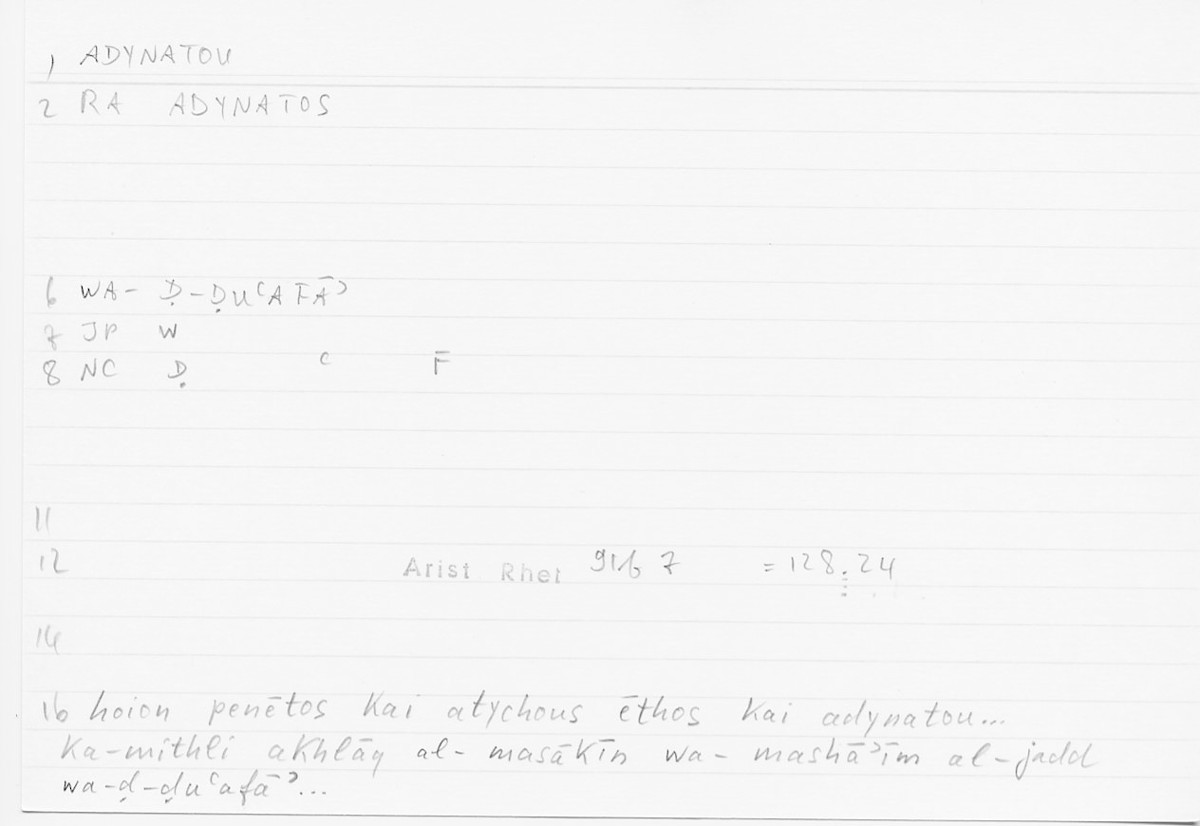 1 ADYNATOU
2 RA ADYNATOS
6 WA- Ḍ-ḌUʿAFĀʾ
7 JP W
8 NC Ḍ ʿ F̄
11
12 Arist Rhet 91b 7 = 128.24
14
16 hoion penētos kai atychous ēthos kai adynatou...
ka-mithli akhlāq al-masākīn wa-mashāʾīm al-jadd
wa-ḍ-ḍuʿafāʾ...